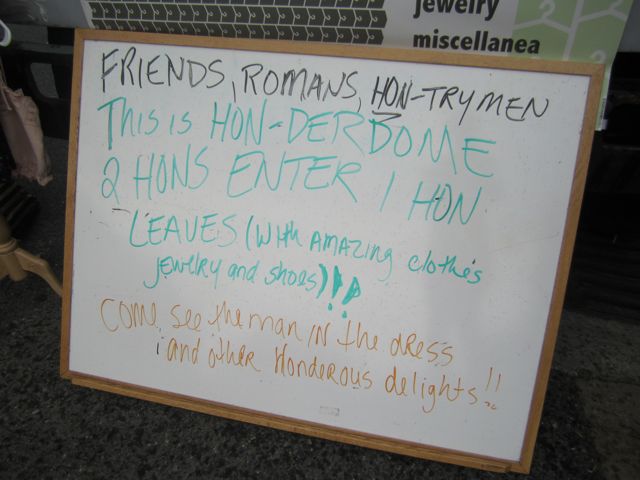 jewelry
miscellanea
FRIENDS, ROMANS, HON-TRYMEN
THis is HON-DERDOME
2 HONS ENTER 1 HON
LEAVES (WITH AMAZING clothes
jewelry and shoes)!!!
COME see the man IN the dRESS
and other Honderous delights!!